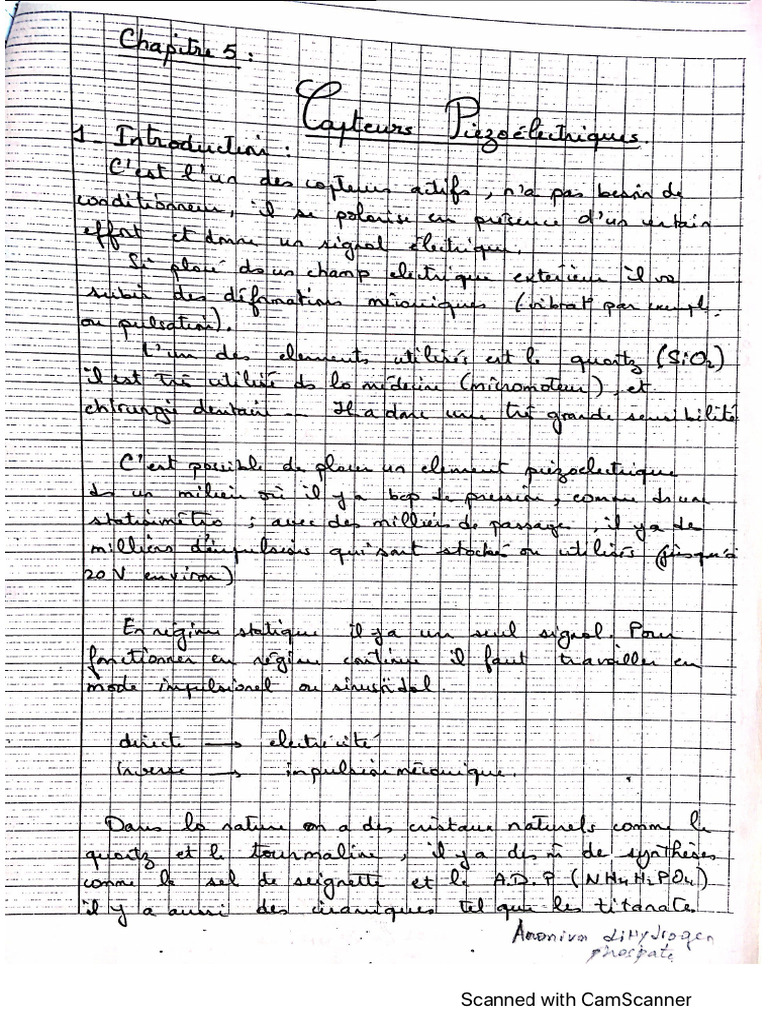 Chapitre 5 :
Capteurs Piezoélectriques.
1- Introduction :
C'est l'un des capteurs actifs, n'a pas besoin de
conditionneur, il se polarise en présence d'un certain
effort et donne un signal électrique.
Si placé ds un champ electrique exterieur il va
subir des déformations mécaniques (vibrat° par exempl.
ou pulsation).
L'un des elements utilisés est le quartz (SiO2)
il est trè utilisé ds la médecine (micromoteur), et
chirurgie dentair --- Il a donc une trè grande sensibilité
C'est possible de placer un element piezoelectrique
ds un milieu où il y a bcp de pression, comme ds une
; avec des milliers de passage, il ya de
milliers d'impulsions qui sont stocké ou utilisés (jusqu'à
20 V environ)
En régime statique il ya un seul signal. Pour
fonctionner en régime continue il faut travailler en
mode impulsionel ou sinusoidal.
directe → electricité
inverse → impulsion mécanique.
Dans la nature on a des cristaux naturels comme le
quartz et le tourmaline, il ya des m de synthèses
comme le sel de seignette et le A.D.P (NH4H2PO4)
il y a aussi des ceramiques tel que les titanate
Amonium diHydrogen
phospate
Scanned with CamScanner